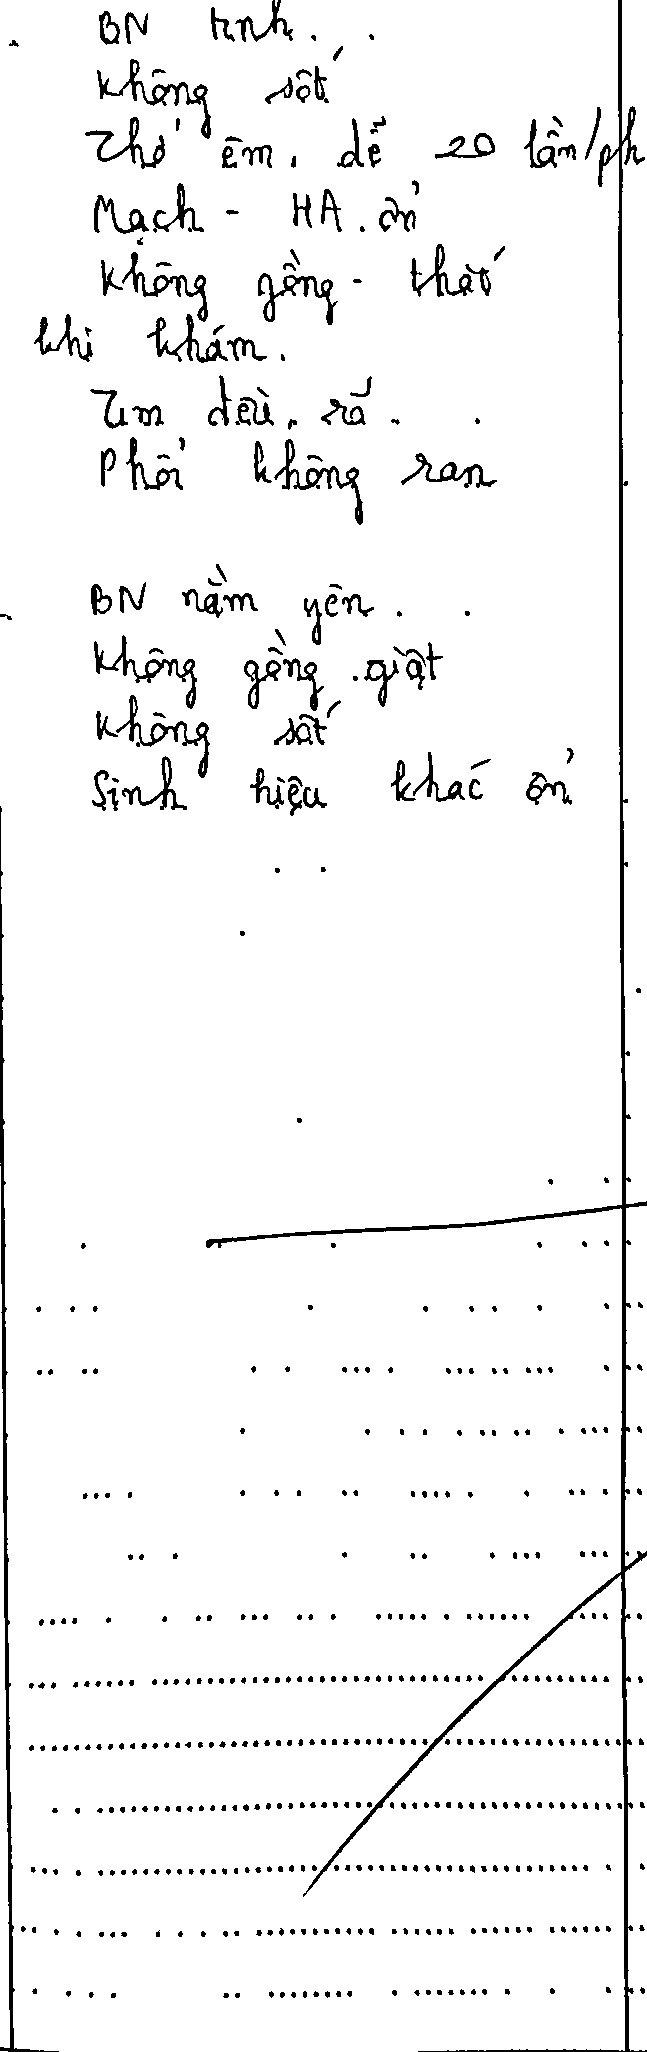 BN tỉnh.
Không sốt
Thở êm, dễ 20 lần/ph
Mạch - HA ổn
Không gồng - thắt
khi khám.
Tim đều, rõ
Phổi không ran
BN nằm yên.
Không gồng giật
Không sốt
Sinh hiệu khác ổn